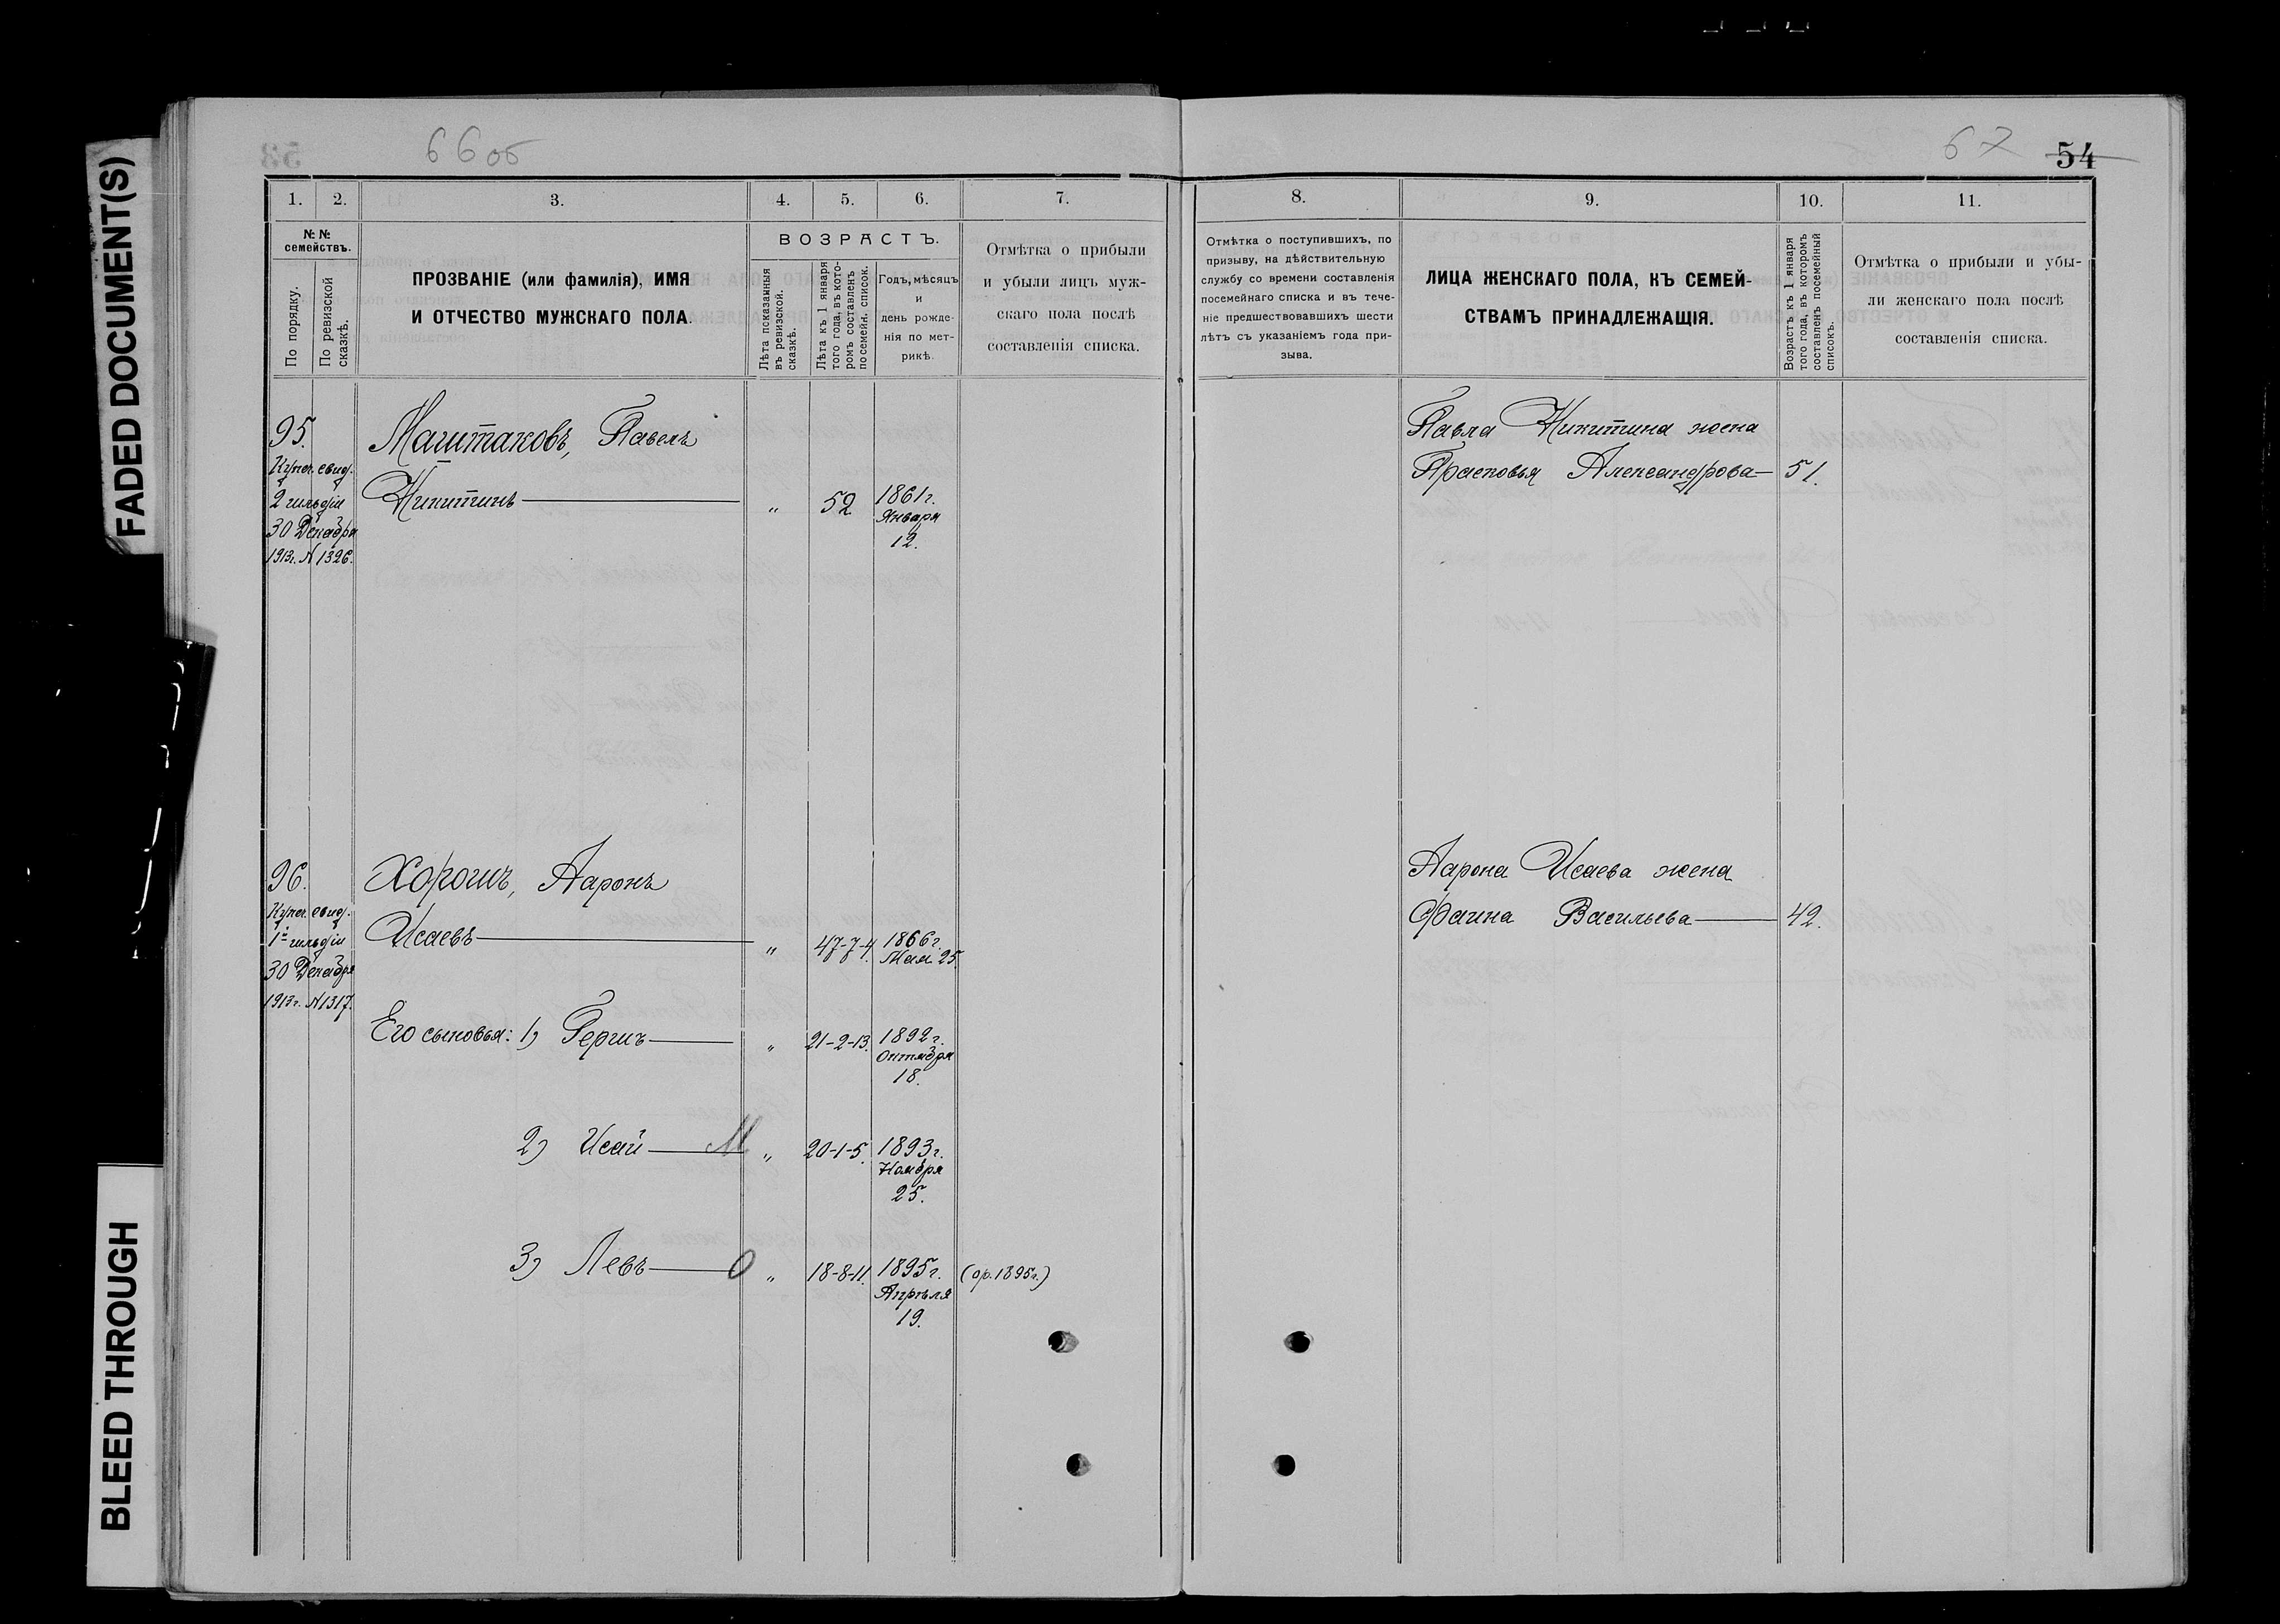 FADED DOCUMENT(S)
BLEED THROUGH
66 об
1. 2. 3. 4. 5. 6. 7.
№ №
семействъ.
По порядку.
По ревизской
сказкѣ.
ПРОЗВАНІЕ (или фамилія), ИМЯ
И ОТЧЕСТВО МУЖСКАГО ПОЛА.
ВОЗРАСТЪ.
Лѣта показанныя
въ ревизской
сказкѣ.
Лѣта къ 1 января
того года, въ кото-
ромъ составленъ
посемейн. список.
Годъ, мѣсяцъ
и
день рожде-
нія по мет-
рикѣ.
Отмѣтка о прибыли
и убыли лицъ муж-
скаго пола послѣ
составленія списка.
95.
Купеч. свид.
2 гильдіи
30 Декабря
1913г. № 1326.
Маштаковъ, Павелъ
Никитинъ „ 52 1861 г.
Января
12.
96.
Купеч. свид.
1й гильдіи
30 Декабря
1913г. № 1317.
Хорошъ, Ааронъ
Исаевъ „ 47-7-4. 1866 г.
Мая 25.
Его сыновья: 1) Гершъ „ 21-2-13. 1892 г.
Октября
18.
2) Исай М „ 20-1-5. 1893 г.
Ноября
25.
3) Левъ О „ 18-8-11. 1895 г. (ор. 1895г.)
Апрѣля
19.
67 54
8. 9. 10. 11.
Отмѣтка о поступившихъ, по
призыву, на дѣйствительную
службу со времени составленія
посемейнаго списка и въ тече-
ніе предшествовавшихъ шести
лѣтъ съ указаніемъ года при-
зыва.
ЛИЦА ЖЕНСКАГО ПОЛА, КЪ СЕМЕЙ-
СТВАМЪ ПРИНАДЛЕЖАЩІЯ.
Возрастъ къ 1 января
того года, въ которомъ
составленъ посемейный
списокъ.
Отмѣтка о прибыли и убы-
ли женскаго пола послѣ
составленія списка.
Павла Никитина жена
Прасковья Александрова 51.
Аарона Исаева жена
Фаина Васильева 42.